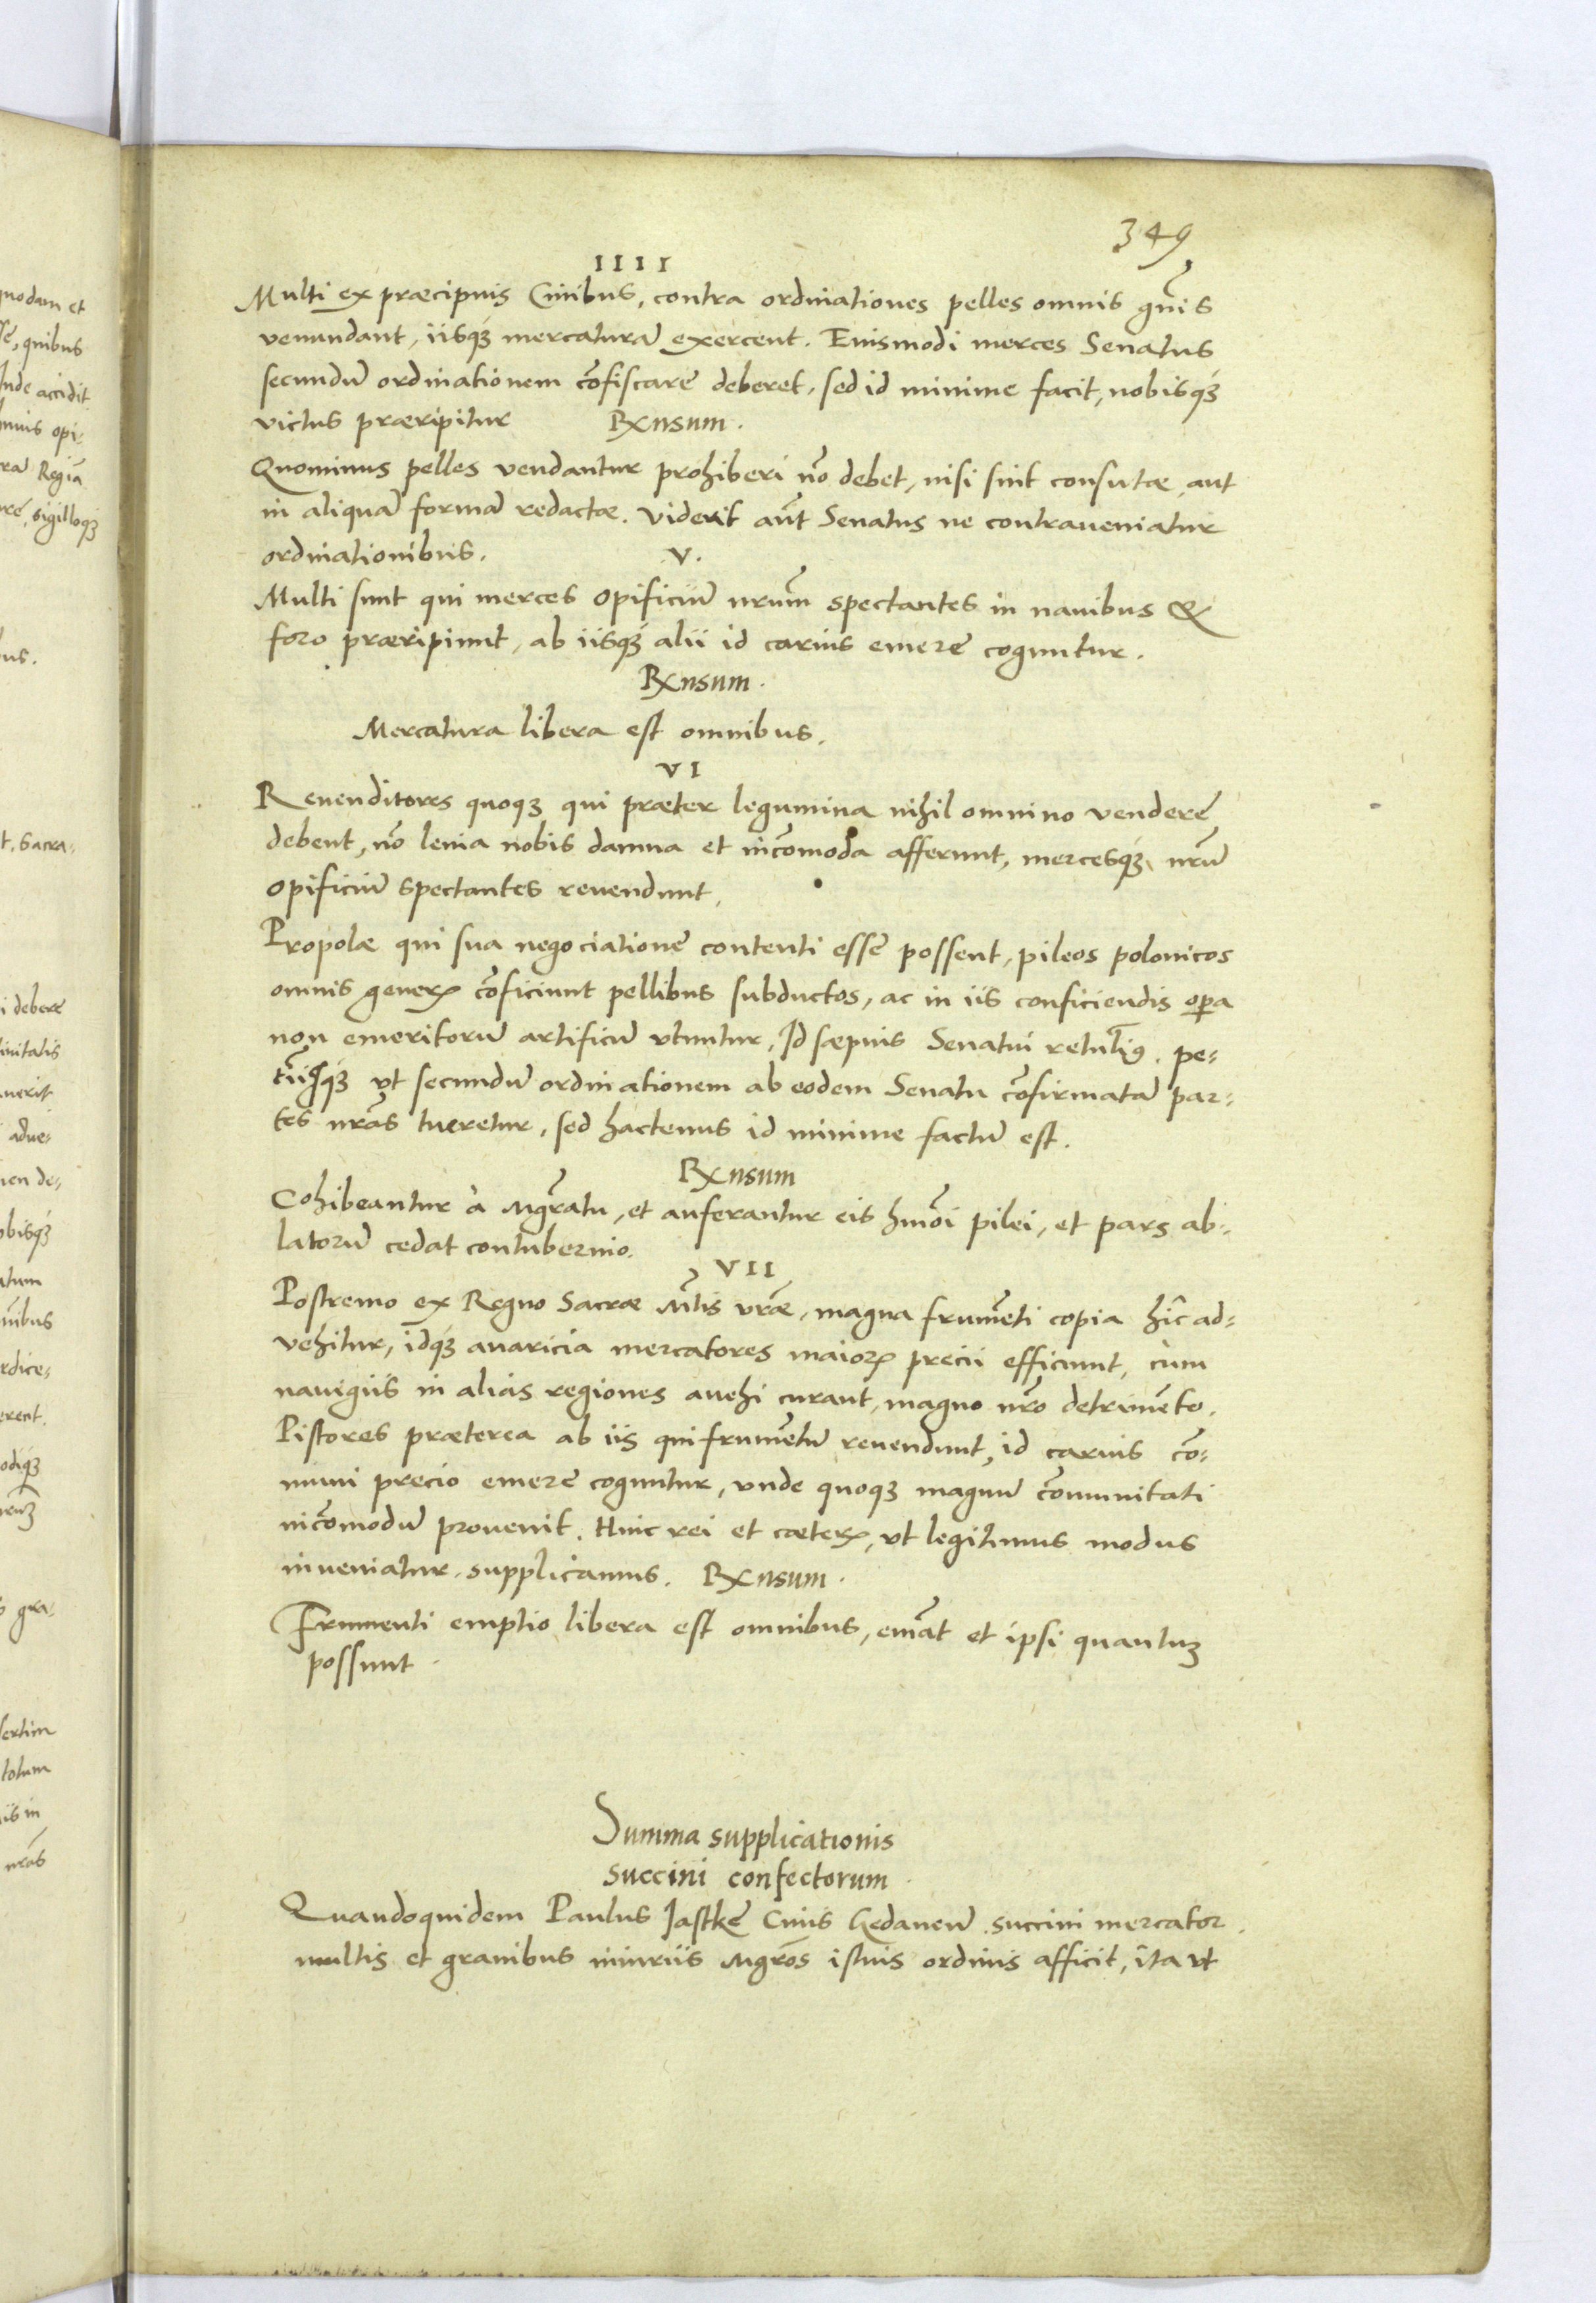 349
IIII
Multi ex præcipuis Ciuibus, contra ordinationes pelles omnis gn̄is
venundant, iisq́ꝫ mercaturā exercent. Eiusmodi merces Senatus
secundū ordinationem cōfiscare deberet, sed id minime facit, nobisq́ꝫ
victus præripitur R̄nsum.
Quominus pelles vendantur prohiberi nō debet, nisi sint consutæ, aut
in aliquā formā redactæ. Viderit aūt Senatus ne contraueniatur
ordinationibus.
V.
Multi sunt qui merces opificiū nrūm spectantes in nauibus &
foro præripiunt, ab iisq́ꝫ alii id carius emere coguntur.
R̄nsum.
Mercatura libera est omnibus.
VI
Reuenditores quoqꝫ qui præter legumina nihil omnino vendere
debent, nō leuia nobis damna et incōmoda afferunt, mercesq́ꝫ nrū
opificiū spectantes reuendunt.
Propolæ qui sua negociatione contenti esse possent, pileos polonicos
omnis generꝝ cōficiunt pellibus subductos, ac in iis conficiendis oꝑa
non emeritorū artificū vtuntur, Id sæpius Senatui retulimꝰ, pe-
tiimꝰqꝫ vt secundū ordinationem ab eodem Senatu cōfirmatā par-
tes nrās tueretur, sed hactenus id minime factū est.
R̄nsum
Cohibeantur à Mgrātu, et auferantur eis hmōi pilei, et pars ab-
latorū cedat contubernio.
VII
Postremo ex Regno Sacræ Mtīs vrāe, magna frumēti copia hîc ad-
vehitur, idq́ꝫ auaricia mercatores maiorꝝ precii efficiunt, cùm
nauigiis in alias regiones auehi curant, magno nrō detrimēto.
Pistores præterea ab iis qui frumētū reuendunt, id carius cō-
muni precio emere coguntur, vnde quoqꝫ magnū cōmunitati
incōmodū prouenit. Huic rei et cæterꝝ, vt legitimus modus
inueniatur, supplicamus. R̄nsum.
Frumenti emptio libera est omnibus, emāt et ipsi quantuꝫ
possunt.
Summa supplicationis
succini confectorum.
Quandoquidem Paulus Jastke Ciuis Gedaneñ. succini mercator.
multis et grauibus iniuriis Mgrōs istius ordinis afficit, ita vt